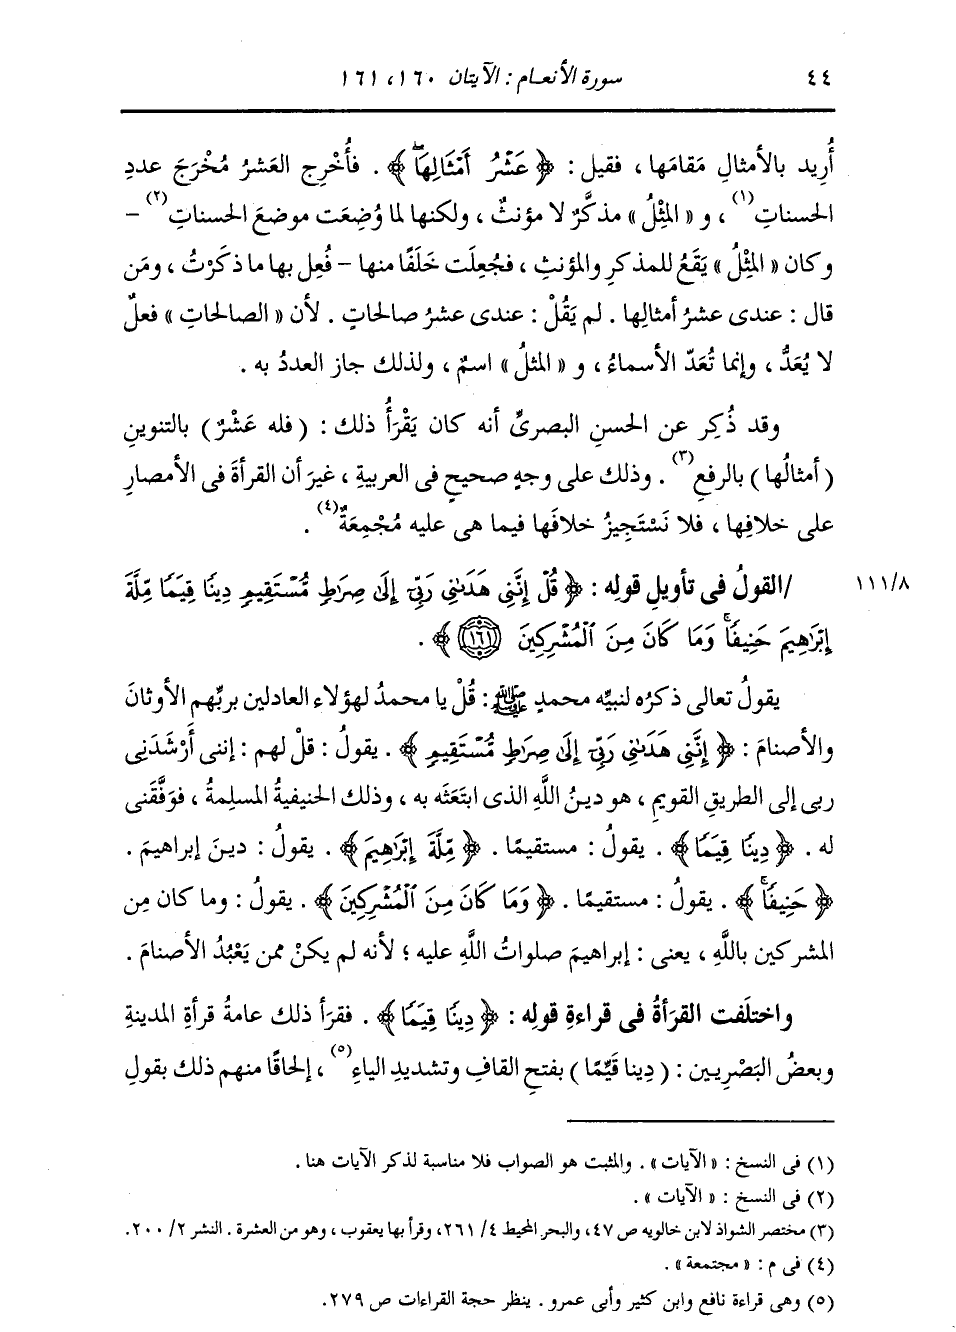 ٤٤ سورة الأنعام : الآيتان ١٦٠، ١٦١
أُرِيد بالأمثالِ مَقامَها ، فقيل : ﴿ عَشْرُ أَمْثَالِهَا ﴾ . فأُخْرِج العَشرُ مُخْرَجَ عددِ
الحسناتِ(١) ، و « المِثْلُ » مذكَّرٌ لا مؤنثٌ ، ولكنها لما وُضِعَت موضعَ الحسناتِ(٢) –
وكان « المِثْلُ » يَقَعُ للمذكرِ والمؤنثِ ، فجُعِلَت خَلَفًا منها – فُعِل بها ما ذكَرْتُ ، ومَن
قال : عندى عشرُ أمثالِها . لم يَقُلْ : عندى عشرُ صالحاتٍ . لأن « الصالحاتِ » فعلٌ
لا يُعَدُّ ، وإنما تُعَدّ الأسماءُ ، و « المثلُ » اسمٌ ، ولذلك جاز العددُ به .
وقد ذُكِر عن الحسنِ البصرىِّ أنه كان يَقْرَأُ ذلك : ( فله عَشْرٌ ) بالتنوينِ
( أمثالُها ) بالرفعِ(٣) . وذلك على وجهٍ صحيحٍ فى العربيةِ ، غيرَ أن القرأةَ فى الأمصارِ
على خلافِها ، فلا نَسْتَجِيزُ خلافَها فيما هى عليه مُجْمِعَةٌ(٤) .
/القولُ فى تأويلِ قولِه : ﴿ قُلْ إِنَّنِي هَدَىٰنِي رَبِّيٓ إِلَىٰ صِرَٰطٍ مُّسْتَقِيمٍ دِينًا قِيَمًا مِّلَّةَ ١١١/٨
إِبْرَٰهِيمَ حَنِيفًاۚ وَمَا كَانَ مِنَ ٱلْمُشْرِكِينَ ١٦١ ﴾ .
يقولُ تعالى ذكرُه لنبيِّه محمدٍ ﷺ : قُلْ يا محمدُ لهؤلاء العادلين بربِّهم الأوثانَ
والأصنامَ : ﴿ إِنَّنِي هَدَىٰنِي رَبِّيٓ إِلَىٰ صِرَٰطٍ مُّسْتَقِيمٍ ﴾ . يقولُ : قلْ لهم : إننى أَرْشَدَنِى
ربى إلى الطريقِ القويمِ ، هو دينُ اللَّهِ الذى ابتَعَثَه به ، وذلك الحنيفيةُ المسلمةُ ، فوَفَّقَنى
له . ﴿ دِينًا قِيَمًا ﴾ . يقولُ : مستقيمًا . ﴿ مِّلَّةَ إِبْرَٰهِيمَ ﴾ . يقولُ : دينَ إبراهيمَ .
﴿ حَنِيفًاۚ ﴾ . يقولُ : مستقيمًا . ﴿ وَمَا كَانَ مِنَ ٱلْمُشْرِكِينَ ﴾ . يقولُ : وما كان مِن
المشركين باللَّهِ ، يعنى : إبراهيمَ صلواتُ اللَّهِ عليه ؛ لأنه لم يكنْ ممن يَعْبُدُ الأصنامَ .
واختلَفت القرَأةُ فى قراءةِ قولِه : ﴿ دِينًا قِيَمًا ﴾ . فقرَأ ذلك عامةُ قرأةِ المدينةِ
وبعضُ البَصْرِيين : ( دِينا قَيِّمًا ) بفتحِ القافِ وتشديدِ الياءِ(٥) ، إلحاقًا منهم ذلك بقولِ
(١) فى النسخ : « الآيات » . والمثبت هو الصواب فلا مناسبة لذكر الآيات هنا .
(٢) فى النسخ : « الآيات » .
(٣) مختصر الشواذ لابن خالويه ص ٤٧، والبحر المحيط ٤/ ٢٦١، وقرأ بها يعقوب ، وهو من العشرة . النشر ٢/ ٢٠٠.
(٤) فى م : « مجتمعة » .
(٥) وهى قراءة نافع وابن كثير وأبى عمرو . ينظر حجة القراءات ص ٢٧٩.